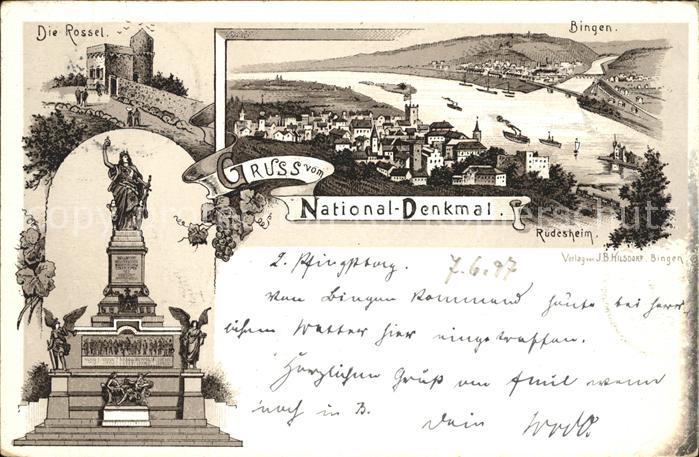 Die Rossel.
Bingen.
GRUSS vom
National-Denkmal.
Rüdesheim.
Verlag von J.B. HILSDORF, Bingen
2. Pfingsttag. 7.6.97
Von Bingen kommend heute bei herr-
lichem Wetter hier eingetroffen.
Herzlichen Gruß an Emil wenn
noch in B.
Dein